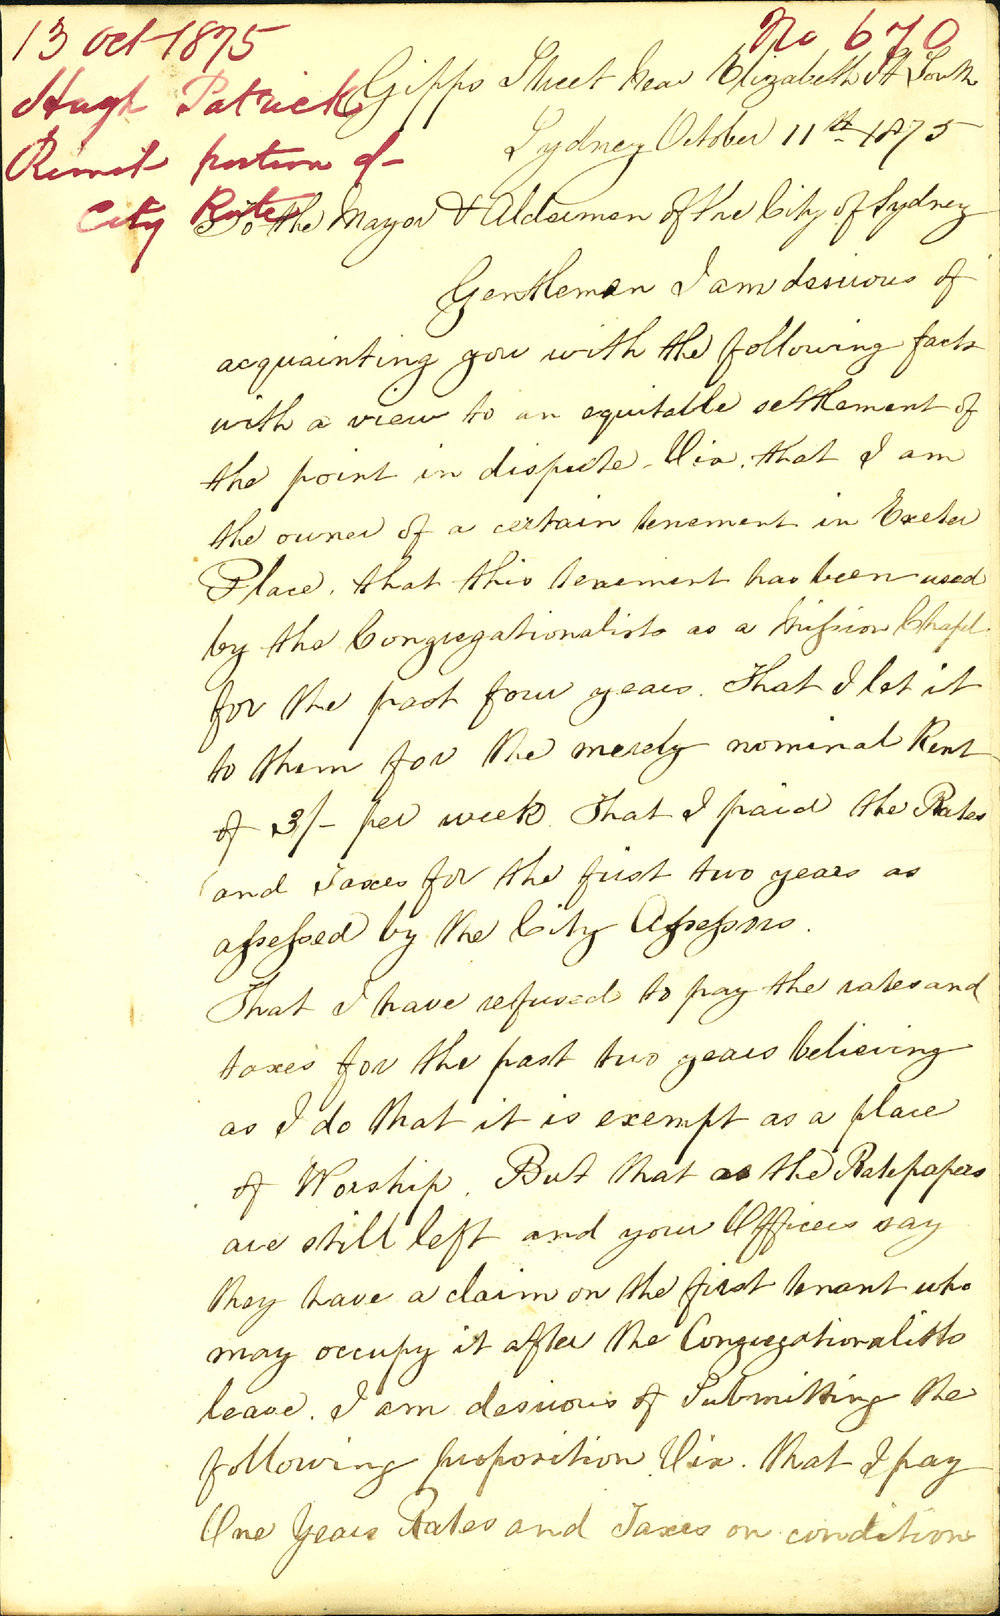 13 Oct 1875
No 670
Hugh Patrick
Remit portion of
City Rates
Gipps Street Near Elizabeth St South
Sydney October 11th 1875
To the Mayor & Aldermen of the City of Sydney
Gentlemen I am desirous of
acquainting you with the following facts
with a view to an equitable settlement of
the point in dispute. Viz. that I am
the owner of a certain tenement in Exeter
Place. that this tenement has been used
by the Congregationalists as a Mission Chapel
for the past four years. That I let it
to them for the merely nominal Rent
of 3/- per week. That I paid the Rates
and Taxes for the first two years as
assessed by the City Assessors.
That I have refused to pay the rates and
taxes for the past two years believing
as I do that it is exempt as a place
of Worship. But that as the Ratepapers
are still left and your Officers say
they have a claim on the first tenant who
may occupy it after the Congregationalists
leave. I am desirous of Submitting the
following proposition Viz. that I pay
One Years Rates and Taxes on condition